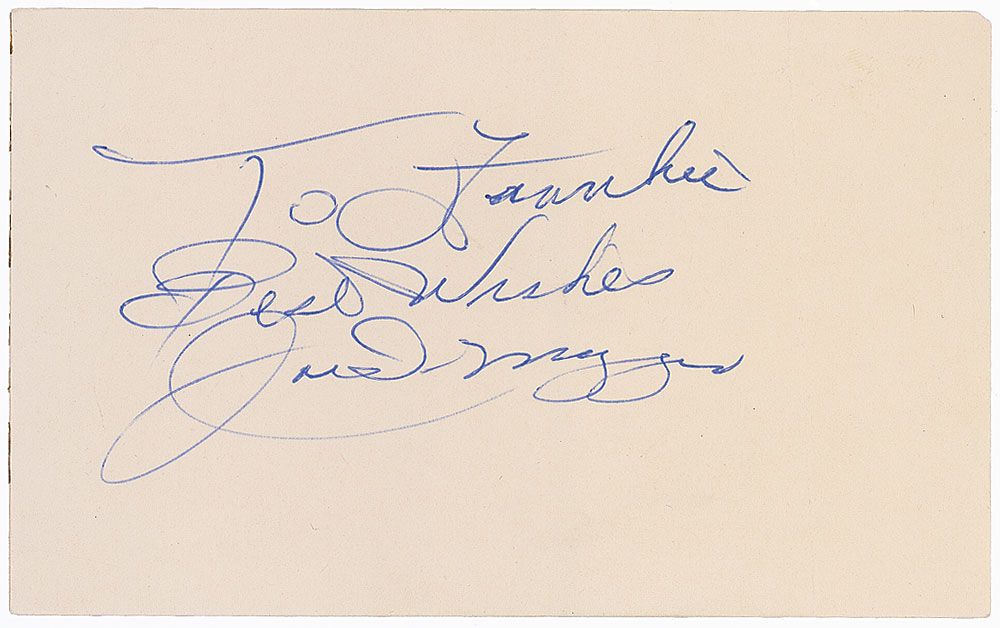 To Frankie
Best Wishes
Joe DiMaggio